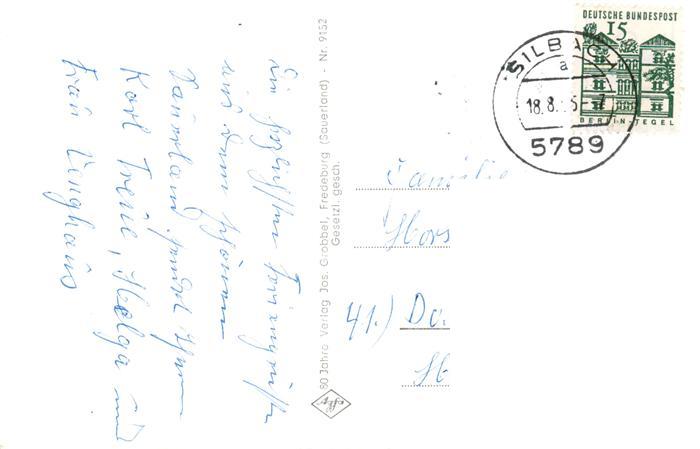 Die herzlichsten Feriengrüße
aus dem schönen
Sauerland sendet Ihnen
Karl Irene, Helga und
Frau Vinghaus
80 Jahre Verlag Jos. Grobbel, Fredeburg (Sauerland) - Nr. 9152
Gesetzl. gesch.
DEUTSCHE BUNDESPOST
15
BERLIN-TEGEL
SILBACH
a
18.8.
5789
Familie
Hors
41.) Du.